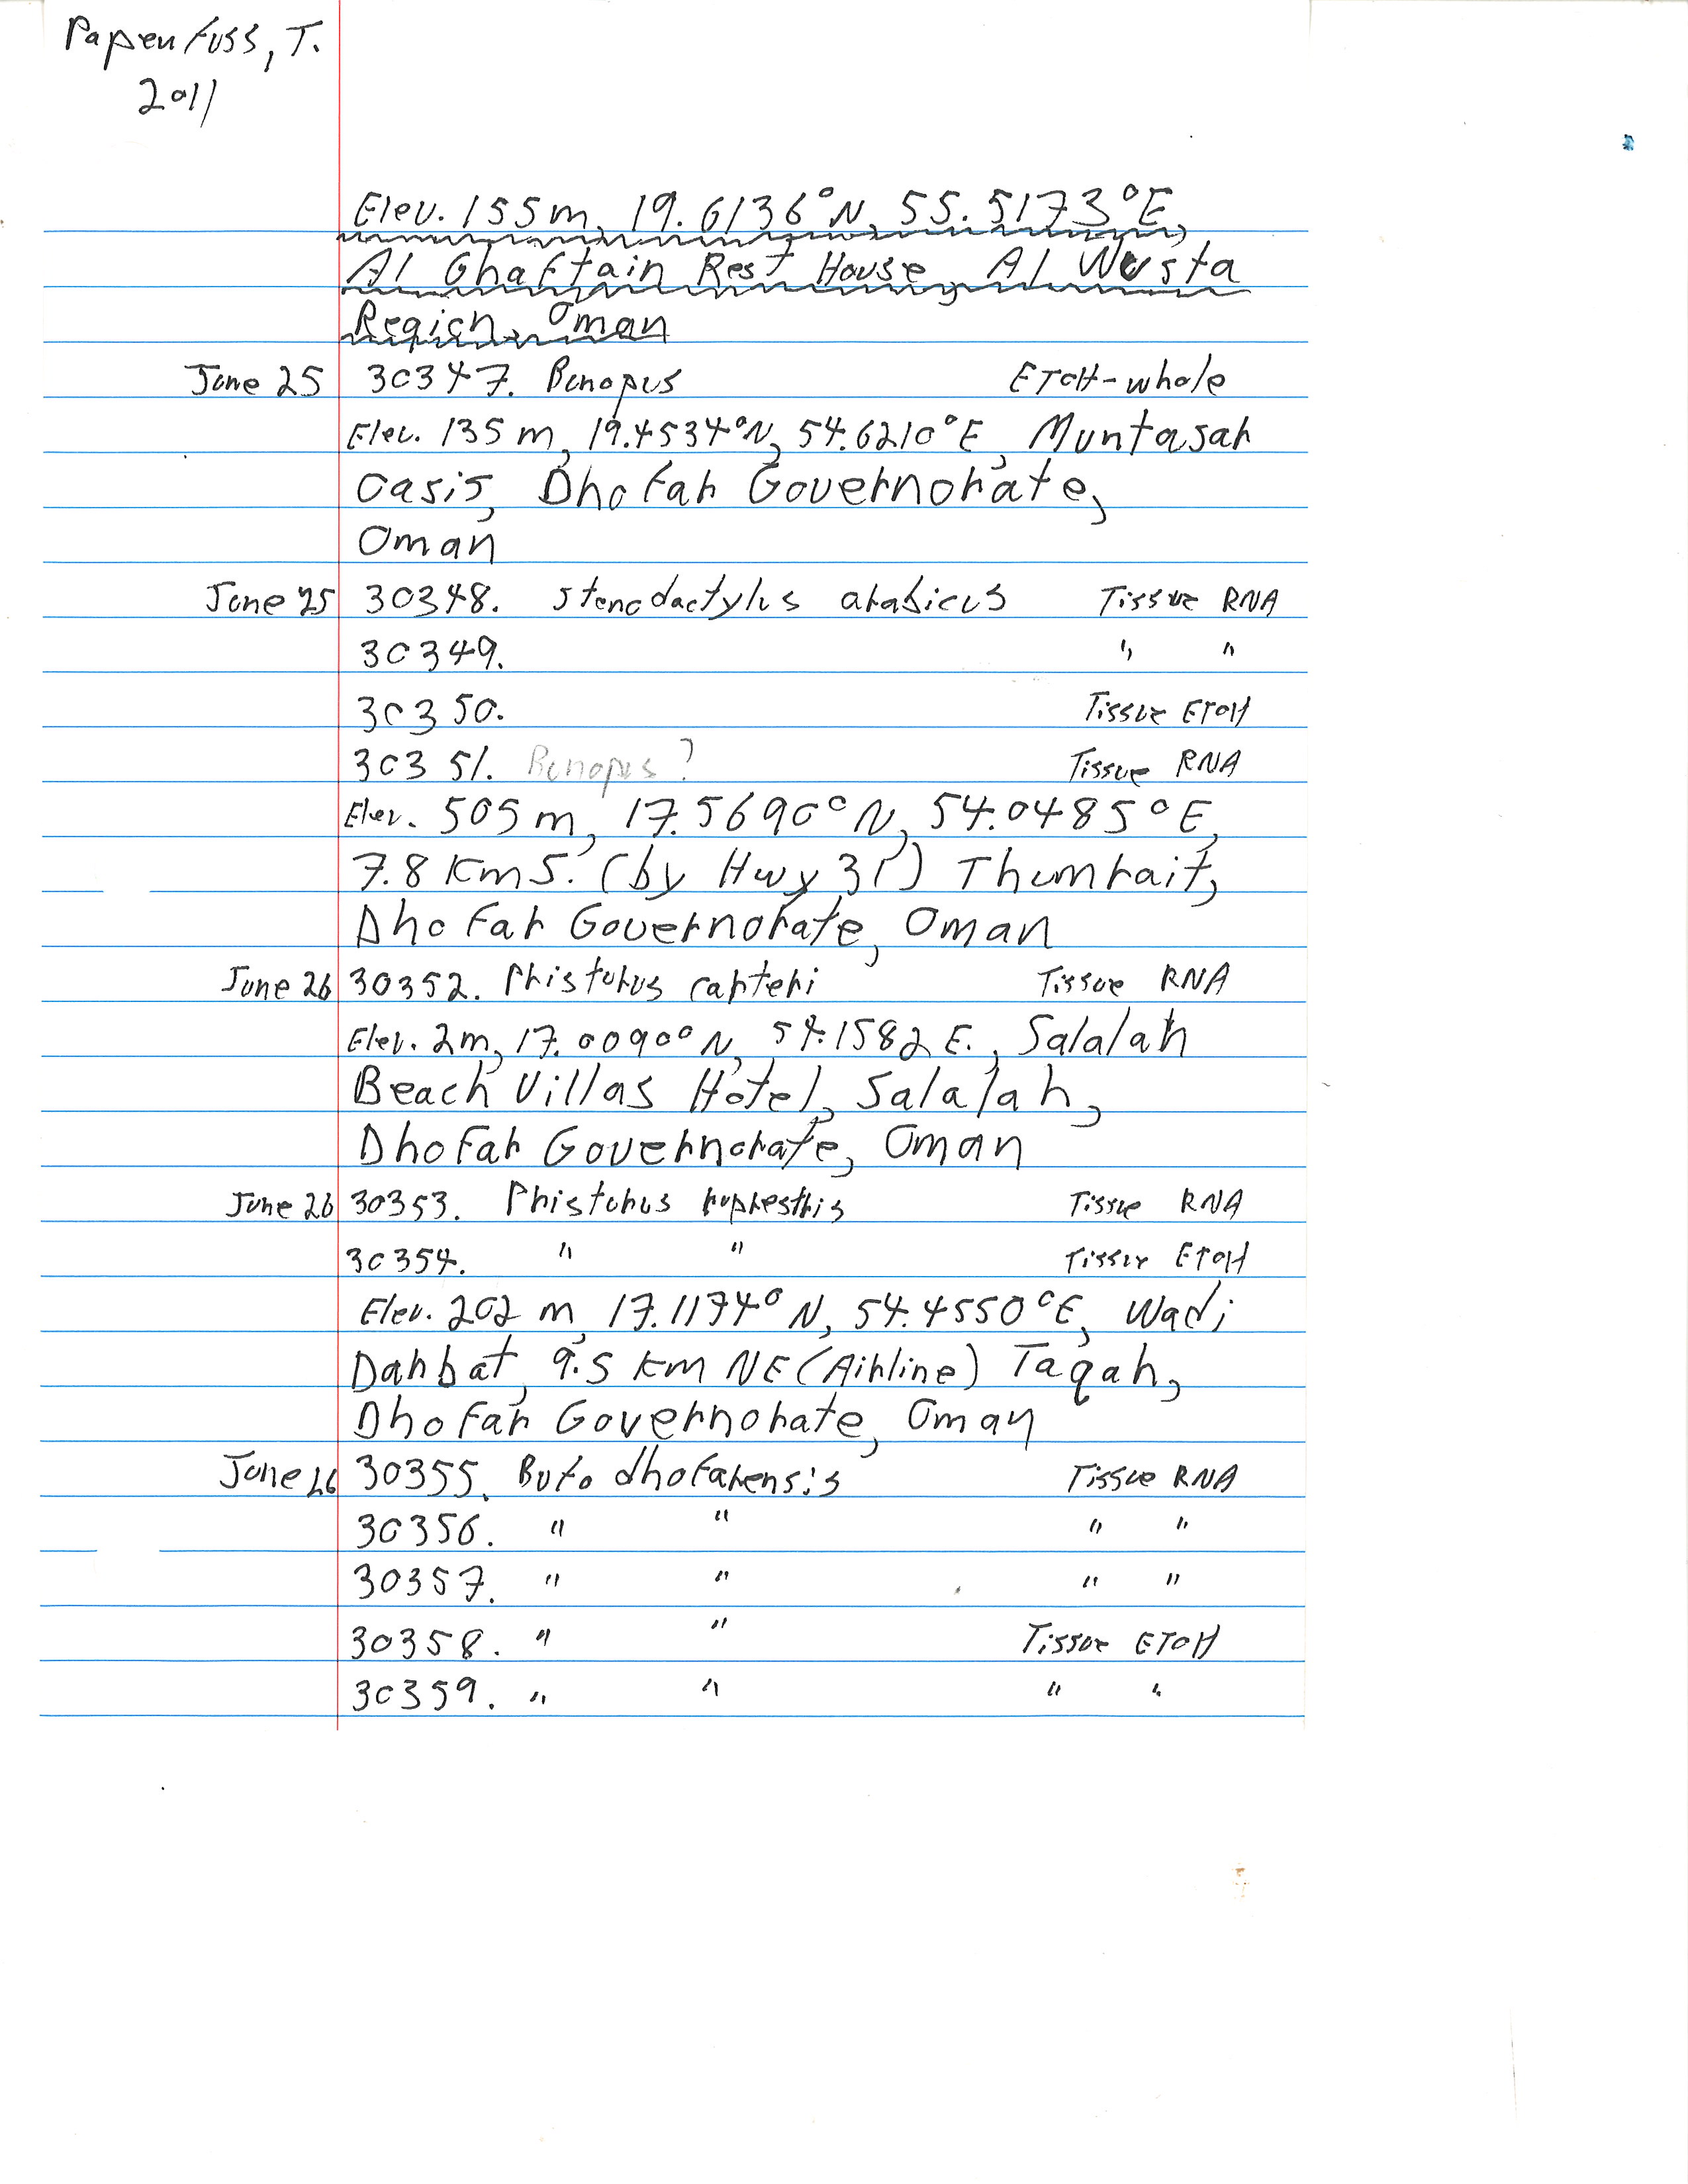 Papenfuss, T.
2011
Elev. 155m, 19.6136°N, 55.5173°E,
Al Ghaftain Rest House, Al Wusta
Region, Oman
June 25 30347. Bunopus ETOH-whole
Elev. 135 m, 19.4534°N, 54.6210°E, Muntasar
Oasis, Dhofar Governorate,
Oman
June 25 30348. Stenodactylus arabicus Tissue RNA
30349. " "
30350. Tissue ETOH
30351. Bunopus? Tissue RNA
Elev. 505 m, 17.5690°N, 54.0485°E,
7.8 Km S. (by Hwy 31) Thumrait,
Dhofar Governorate, Oman
June 26 30352. Pristurus carteri Tissue RNA
Elev. 2m, 17.0090°N, 54.1582 E., Salalah
Beach Villas Hotel, Salalah,
Dhofar Governorate, Oman
June 26 30353. Pristurus rupestris Tissue RNA
30354. " " Tissue ETOH
Elev. 202 m, 17.1174°N, 54.4550°E, Wadi
Darbat, 9.5 Km NE (Airline) Taqah,
Dhofar Governorate, Oman
June 26 30355. Bufo dhofarensis Tissue RNA
30356. " " " "
30357. " " " "
30358. " " Tissue ETOH
30359. " " " "